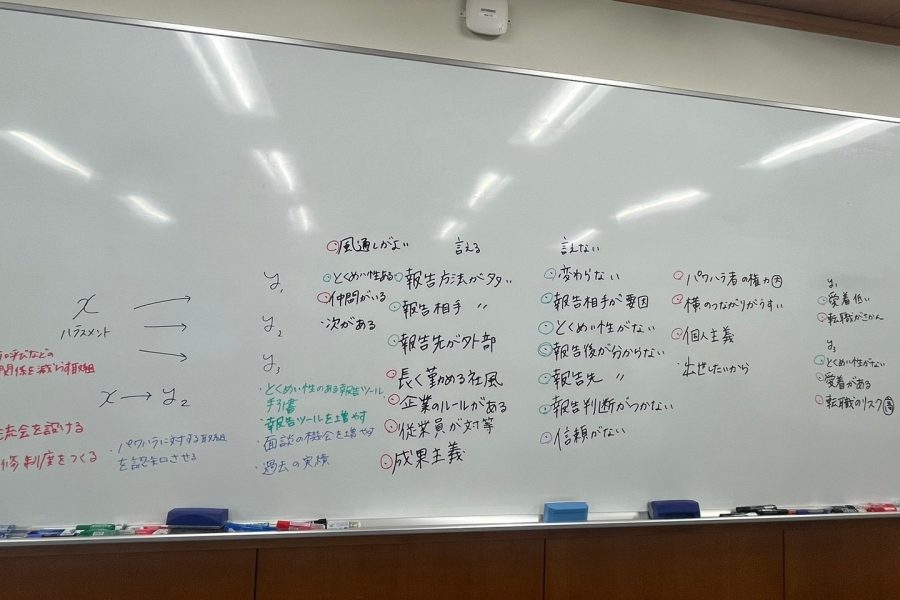 x
ハラスメント
y₁
y₂
y₃
関係を減らす取組
x → y₂
流会を設ける
修制度をつくる
・パワハラに対する取組
を認知させる
・とくめい性のある報告ツール
手引書
・報告ツールを増やす
・面談の機会を増やす
・過去の実績
風通しがよい
言える
とくめい性ある
仲間がいる
・次がある
報告方法がタタ"い
報告相手 〃
報告先が外部
長く勤める社風
企業のルールがある
従業員が対等
成果主義
言えない
変わらない
報告相手が要因
とくめい性がない
報告後が分からない
報告先 〃
報告判断がつかない
信頼がない
パワハラ者の権力高
横のつながりがうすい
個人主義
・出世したいから
y₁
愛着低い
転職がさかん
y₃
とくめい性がない
愛着がある
転職のリスク高